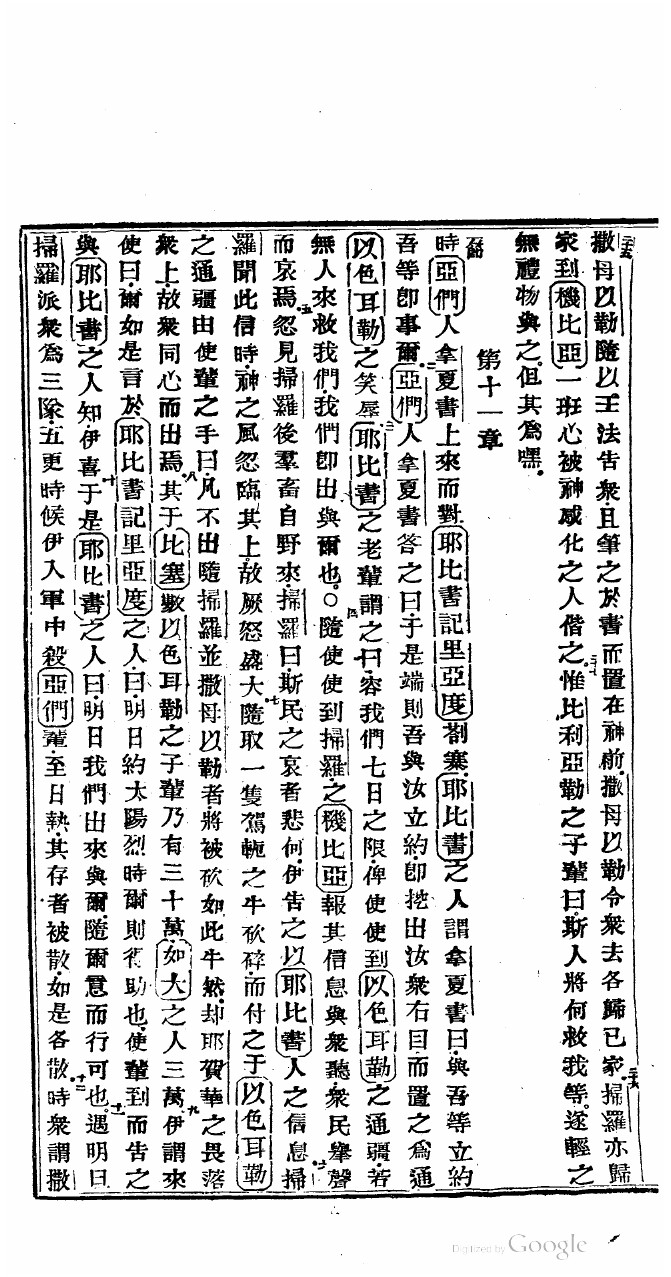 撒母以勒隨以王法告衆且筆之於書而置在神前撒母以勒令衆去各歸已家掃羅亦歸
家到機比亞一班心被神感化之人偕之惟比利亞勒之子輩曰斯人將何救我等遂輕之
無禮物與之但其為嘿
第十一章
時亞們人拿夏書上來而對耶比書記里亞度劄寨耶比書之人謂拿夏書曰與吾等立約
吾等卽事爾亞們人拿夏書答之曰于是端則吾與汝立約卽挖出汝衆右目而置之為通
以色耳勒之笑辱耶比書之老輩謂之曰容我們七日之限俾使使到以色耳勒之通疆若
無人來救我們我們卽出與爾也○隨使使到掃羅之機比亞報其信息與衆聽衆民舉聲
而哀焉忽見掃羅後羣畜自野來掃羅曰斯民之哀者悲何伊告之以耶比書人之信息掃
羅聞此信時神之風忽臨其上故厥怒盛大隨取一隻駕軛之牛砍碎而付之于以色耳勒
之通疆由使輩之手曰凡不出隨掃羅並撒母以勒者將被砍如此牛然却耶賀華之畏落
衆上故衆同心而出焉其于比塞數以色耳勒之子輩乃有三十萬如大之人三萬伊謂來
使曰爾如是言於耶比書記里亞度之人曰明日約太陽烈時爾則得助也使輩到而告之
與耶比書之人知伊喜于是耶比書之人曰明日我們出來與爾隨爾意而行可也遇明日
掃羅派衆為三隊五更時候伊入軍中殺亞們輩至日熱其存者被散如是各散時衆謂撒
Digitized by Google